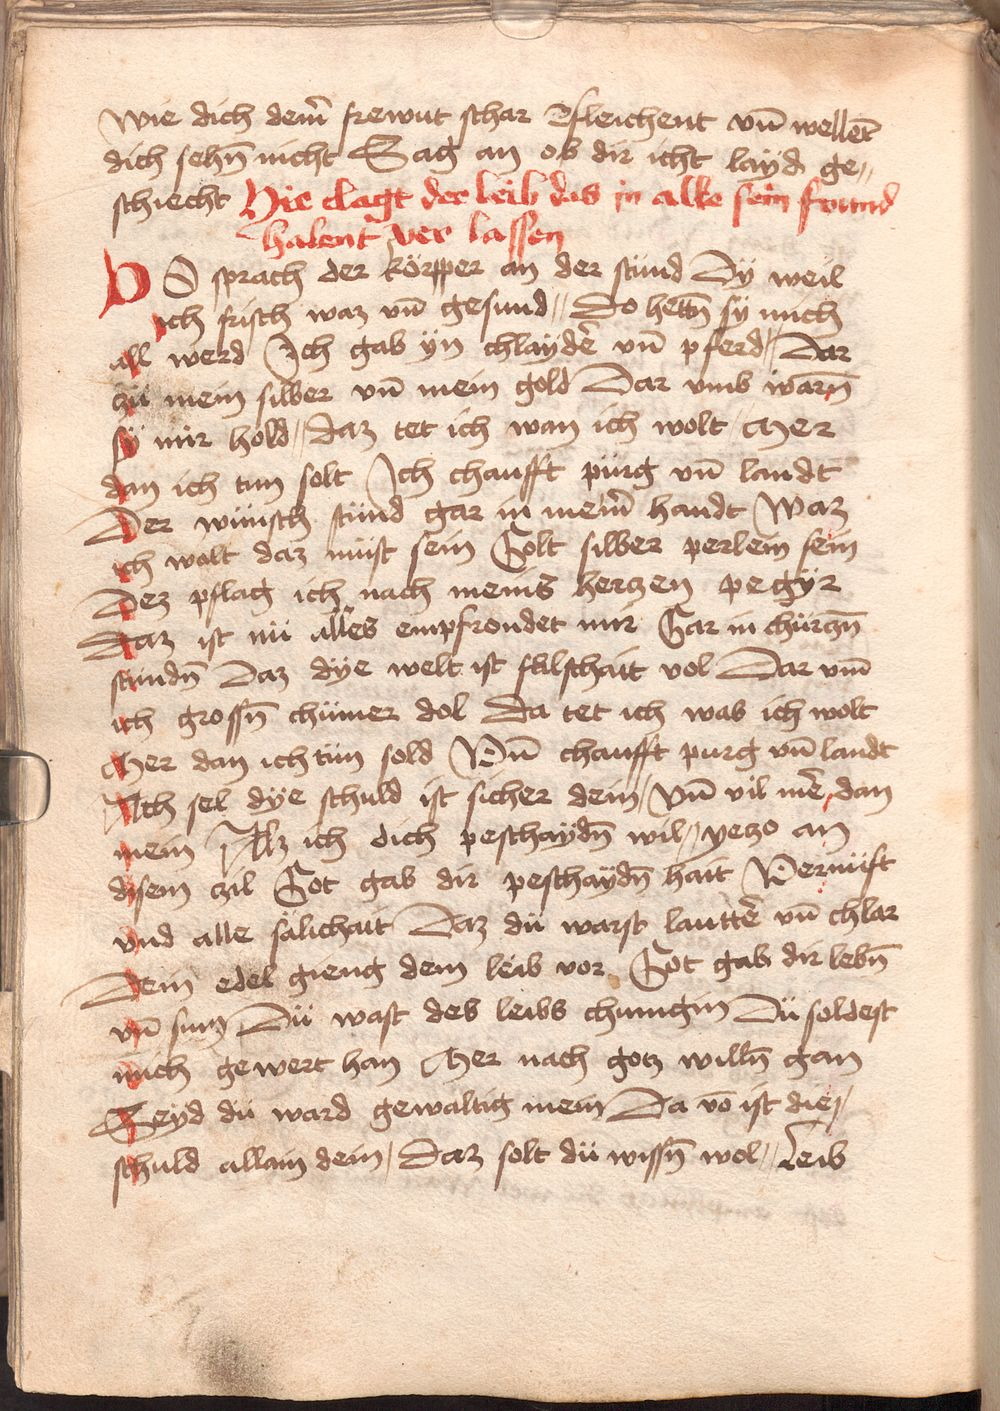 Wie dich dem̄ frewnt schar Fleichent vn̄ wellen̄
dich sehn̄ nicht Sag an ob dir icht layd ge„
schiecht Hie clagt der leib das in alle sein frund
habent ver lassen
DO sprach der körpper an der stünd Dÿ weil
ich frisch waz vn̄ gesund„ Do hettn̄ sÿ mich
all werd Ich gab ÿn chlaÿder̄ vn̄ pferd„ Dar
zü mein silber vn̄ mein gold Dar vmb warn̄
sÿ mir hold„ Daz tet ich wan ich wolt„ Mer
dan ich tun solt Ich chaufft pürg vn̄ landt
Der wünsch stünd gar in mein̄ handt Waz
ich wolt daz müst sein Golt silber perlein fein
Dez pflag ich nach meins herczen pegÿr
Daz ist nü alles empfrondet mir Gar in chürczn̄
stundn̄ Daz dÿe welt ist falschait vol Dar vm̄
ich grossn̄ chümer dol Da tet ich was ich wolt
Mer dan ich tün sold Vn̄ chaufft purg vn̄ landt
Ach sel dÿe schuld ist sicher dein„ Vn̄ vil mer̄ dan
mein Alz ich dich peschaÿdn̄ wil„ yeczo an
disem zil Got gab dir peschaÿdn̄ hait Vernüft
vnd alle sälichait Daz dü warst lautter̄ vn̄ chlar
Dein edel gieng dem leib vor Got gab dir lebn̄
vn̄ sinn Dü wast des leibs chunigin Dü soldest
mich gewert han Mer nach gotz willn̄ gan
Seÿd dü ward gewaltig mein Da vō ist die„
schuld allain dein„ Daz solt dü wissn̄ wol„ Leib